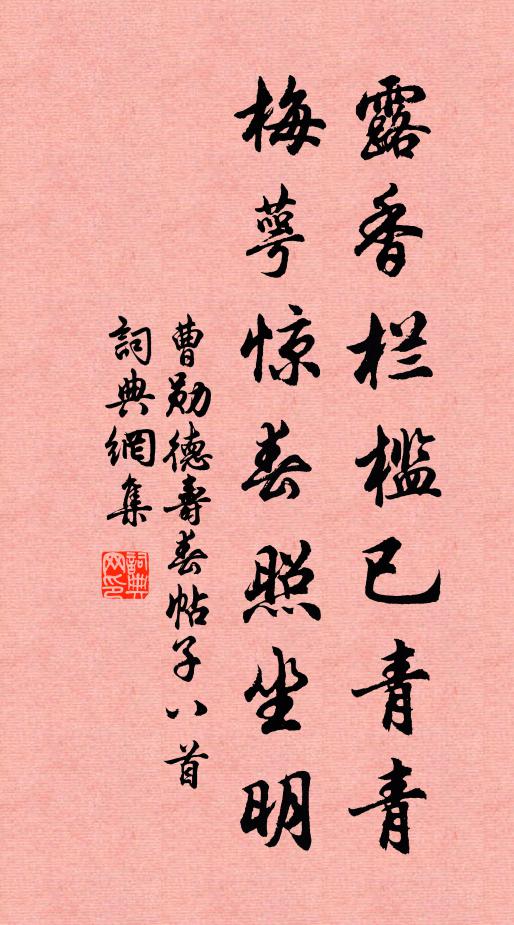 露香栏槛已青青
梅萼惊春照坐明
曹勋德壽春帖子八首
詞典網集
詞典
网印